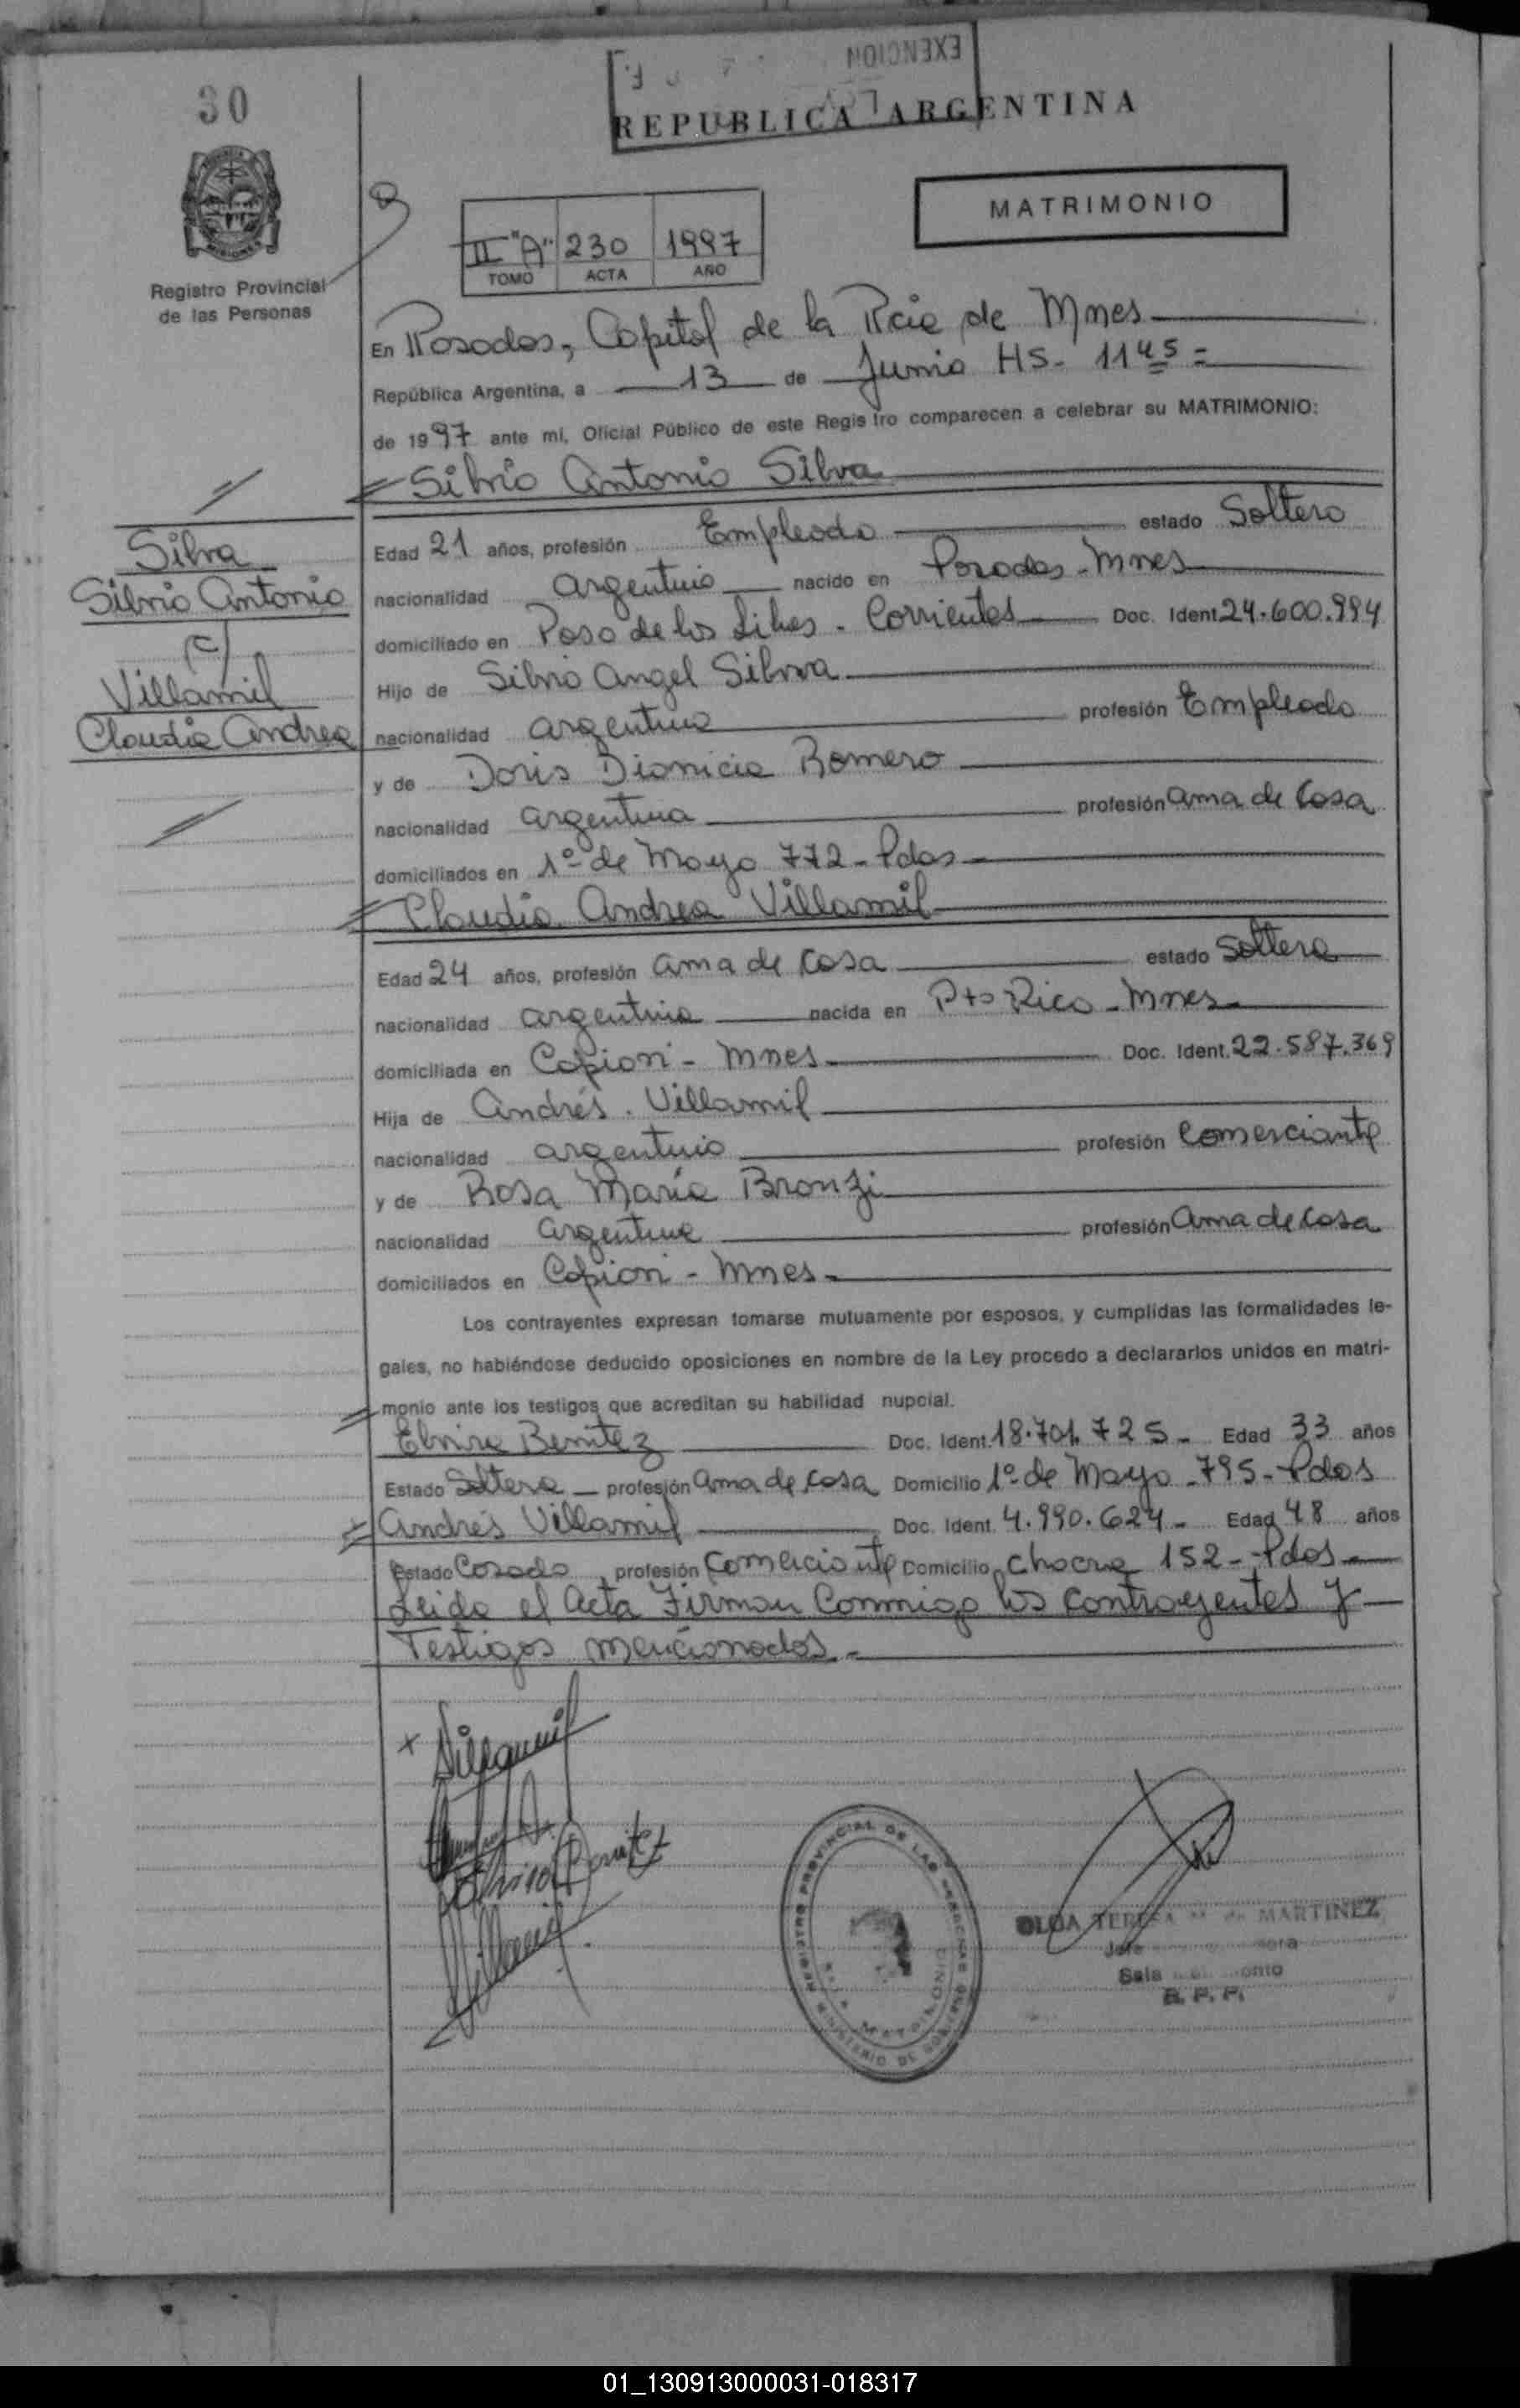 EXENCION
LEY
30
REPUBLICA ARGENTINA
MATRIMONIO
II "A" 230 1997
TOMO ACTA AÑO
Registro Provincial
de las Personas
En Posadas, Capital de la Pcia de Mnes
República Argentina, a 13 de Junio HS- 11 45 =
de 1997 ante mi, Oficial Público de este Registro comparecen a celebrar su MATRIMONIO:
Silvio Antonio Silva
Edad 21 años, profesión Empleado estado Soltero
nacionalidad argentino nacido en Posadas - Mnes
domiciliado en Paso de los Libres - Corrientes Doc. Ident 24.600.994
Hijo de Silvio Angel Silva
nacionalidad argentino profesión Empleado
y de Doris Dionicia Romero
nacionalidad argentina profesión ama de casa
domiciliados en 1º de Mayo 772 - Pdas
Silva
Silvio Antonio
c/
Villamil
Claudia Andrea
Claudia Andrea Villamil
Edad 24 años, profesión ama de casa estado Soltera
nacionalidad argentina nacida en Pto Rico - Mnes
domiciliada en Capiovi - Mnes Doc. Ident. 22.587.369
Hija de Andrés Villamil
nacionalidad argentino profesión Comerciante
y de Rosa María Bronzi
nacionalidad argentina profesión ama de casa
domiciliados en Capiovi - Mnes
Los contrayentes expresan tomarse mutuamente por esposos, y cumplidas las formalidades le-
gales, no habiéndose deducido oposiciones en nombre de la Ley procedo a declararlos unidos en matri-
monio ante los testigos que acreditan su habilidad nupcial.
Elvira Benitez Doc. Ident. 18.701.725 - Edad 33 años
Estado Soltera profesión ama de casa Domicilio 1º de Mayo 795 - Pdas
Andrés Villamil Doc. Ident. 4.990.624 - Edad 48 años
Estado Casado profesión Comerciante Domicilio Chacra 152 - Pdas
Leida el Acta Firman Conmigo los contrayentes y
Testigos mencionados.
x Villamil
Elvira Benitez
Villamil
REGISTRO PROVINCIAL DE LAS PERSONAS
MINISTERIO DE GOBIERNO
MATRIMONIO
OLGA TERESA de MARTINEZ
Jefe
Sala
R. P. P.
01_130913000031-018317